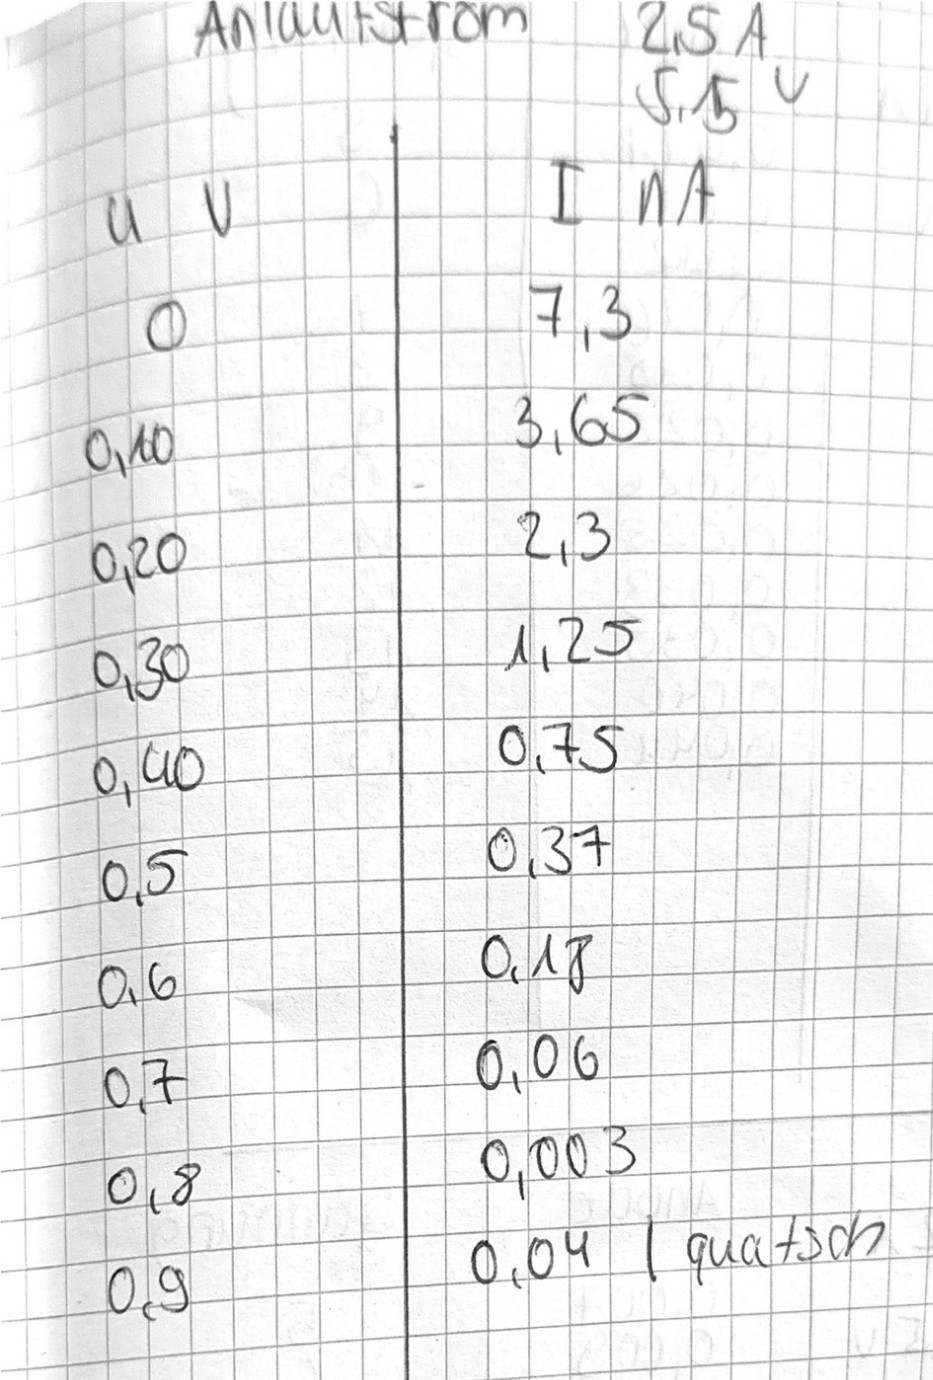 Anlaufstrom 2,5 A
5,15 V
U V I nA
0 7,3
0,10 3,65
0,20 2,3
0,30 1,25
0,40 0,75
0,5 0,37
0,6 0,18
0,7 0,06
0,8 0,003
0,9 0,04 | quatsch